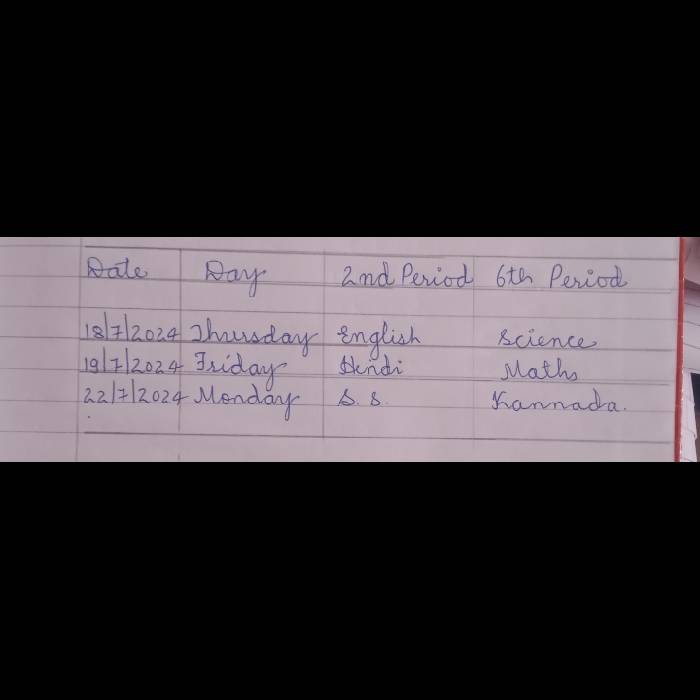 Date Day 2nd Period 6th Period
18/7/2024 Thursday English Science
19/7/2024 Friday Hindi Maths
22/7/2024 Monday S. S. Kannada.